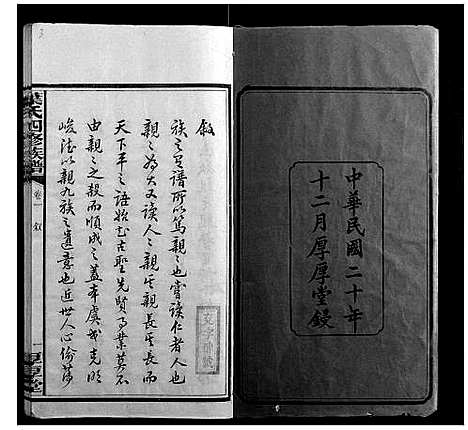 中華民國二十年
十二月厚厚堂鋟
敘
族之有譜所以篤親親也嘗讀仁者人也
親親為大又讀人人親其親長其長而
天下平之語始知古聖先賢事業莫不
由親親之殺而順成之蓋本虞戒克明
峻德以親九族之遺意也近世人心偷薄
氏四修族譜
卷一
敘
一
厚堂